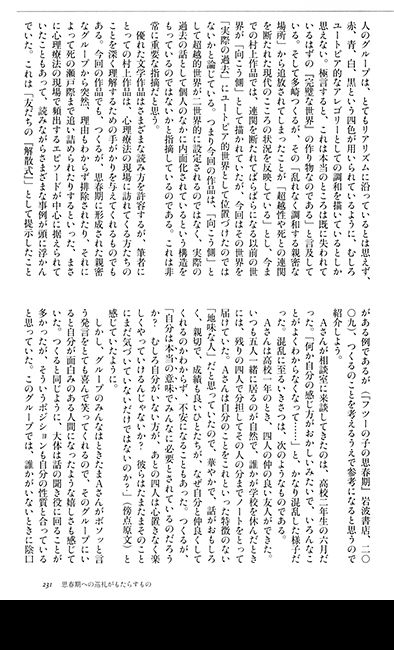 人のグループは、とてもリアリズムに沿っているとは思えず、
赤、青、白、黒という四色が用いられているように、むしろ
ユートピア的なアレゴリーとしての調和を描いているとしか
思えない。極言すると、これは本当のところは既に失われて
いるはずの『完璧な世界』の作り物なのである」と言及して
いる。そして多崎つくるが、その「乱れなく調和する親密な
場所」から追放されてしまったことが「超越性や死との連関
を断たれた現代のこころの状況を反映している」とし、今ま
での村上作品では、連関を断たれてばらばらになる以前の世
界が「向こう側」として描かれていたが、今回はその世界を
「実際の過去」にユートピア的世界として位置づけたのでは
ないかと論じている。つまり今回の作品は、「向こう側」と
して超越的世界が「世界的に設定されるのではなく、実際の
過去の話として個人のなかに内面化されているという構造を
もっているのではないかと指摘しているのである。これは非
常に重要な指摘だと思う。
優れた文学作品はさまざまな読み方を許容するが、筆者に
とっての村上作品は、心理療法の現場に訪れてくる方たちの
ことを深く理解するための手がかりを与えてくれるものでも
ある。今回の作品でも、つくるが、思春期に形成された親密
なグループから突然、理由もわからず排除されたり、それに
よって死の瀬戸際まで追い詰められたりするといった、まさ
に心理療法の現場で頻出するエピソードが中心に据えられて
いたこともあって、読みながらさまざまな事例が頭に浮かん
でいた。これは「友だちの『解散式』」として提示したこと
がある例であるが(『フツーの子の思春期』岩波書店、二〇
〇九)、つくるのことを考えるうえで参考になると思うので
紹介しよう。
Aさんが相談室に来談してきたのは、高校二年生の六月だ
った。「何か自分の感じ方がおかしいみたいで、いろんなこ
とがよくわからなくなって……」と、かなり混乱した様子だ
った。混乱に至るいきさつは、次のようなものである。
Aさんは高校一年のとき、四人の仲の良い友人ができた。
いつも五人一緒に居るのが自然で、誰かが学校を休んだとき
には、残りの四人で分担してその人の分までノートをとって
届けていた。Aさんは自分のことをこれといった特徴のない
「地味な人」だと思っていたので、華やかで、話がおもしろ
く、親切で、成績も良いひとたちが、なぜ自分と仲良くして
くれるのかわからず、不安になることもあった。つくるが、
「自分は本当の意味でみんなに必要とされているのだろう
か? むしろ自分がいない方が、あとの四人は心置きなく楽
しくやっていけるんじゃないか? 彼らはたまたまそのこと
にまだ気づいていないだけではないのか?」(傍点原文)と
感じていたように。
しかし、グループのみんなはときたまAさんがボソッと言
う発言をとても喜んで笑ってくれるので、そのグループにい
ると自分が面白みのある人間になったような嬉しさも感じて
いた。つくると同じように、大体は話の聞き役に回ることが
多かったが、そういうポジションも自分の性質と合っている
と思っていた。このグループでは、誰かがいないときに陰口
231 思春期への巡礼がもたらすもの